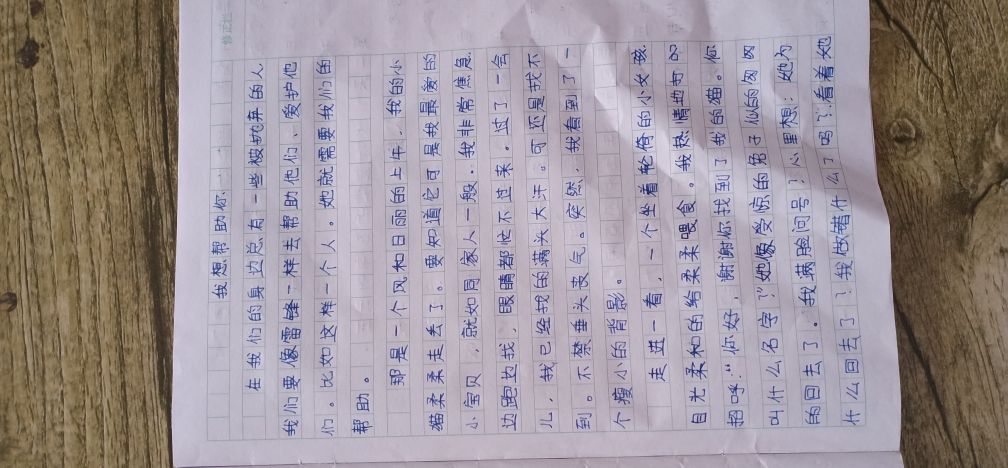 我想帮助你
在我们的身边总有一些被抛弃的人
我们要像雷锋一样去帮助他们、爱护他
们。比如这样一个人。她就需要我们的
帮助。
那是一个风和日丽的上午，我的小
猫柔柔走丢了。要知道它可是我最爱的
小宝贝，就如同家人一般。我非常焦急
边跑边找，眼睛都忙不过来。过了一会
儿，我已经找的满头大汗。可还是找不
到。不禁垂头丧气。突然，我看到了一
个瘦小的背影。
走进一看，一个坐着轮椅的小女孩
目光柔和的给柔柔喂食。我热情地打
招呼：“你好，谢谢你找到了我的猫。你
叫什么名字？”她像受惊的兔子似的匆匆
的回去了。我满脸问号？心里想：她为
什么回去了？我做错什么了吗？看着她